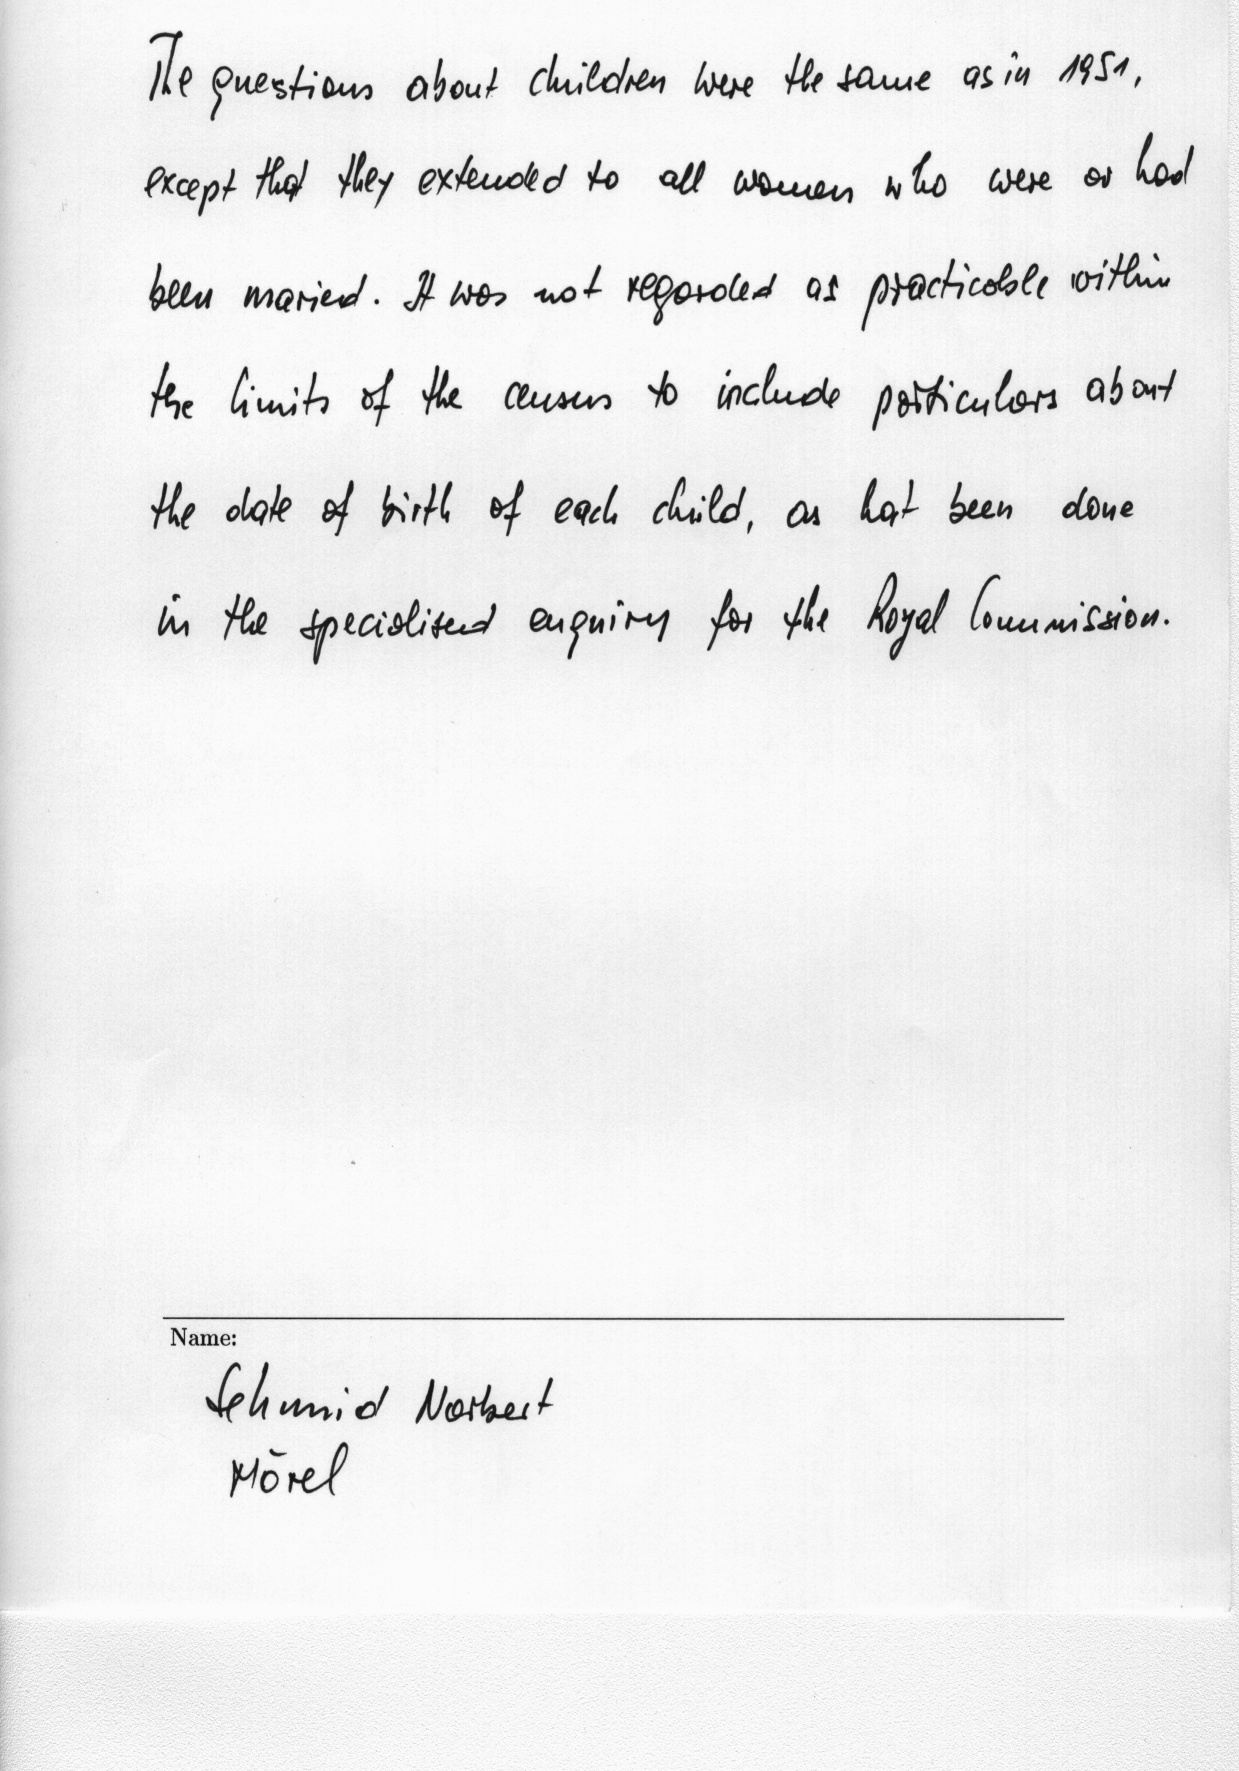 The questions about children were the same as in 1951,
except that they extended to all women who were or had
been maried. It was not regarded as practicable within
the limits of the census to include particulars about
the date of birth of each child, as hat been done
in the specialised enquiry for the Royal Commission.
Name:
Schmid Norbert
Mörel